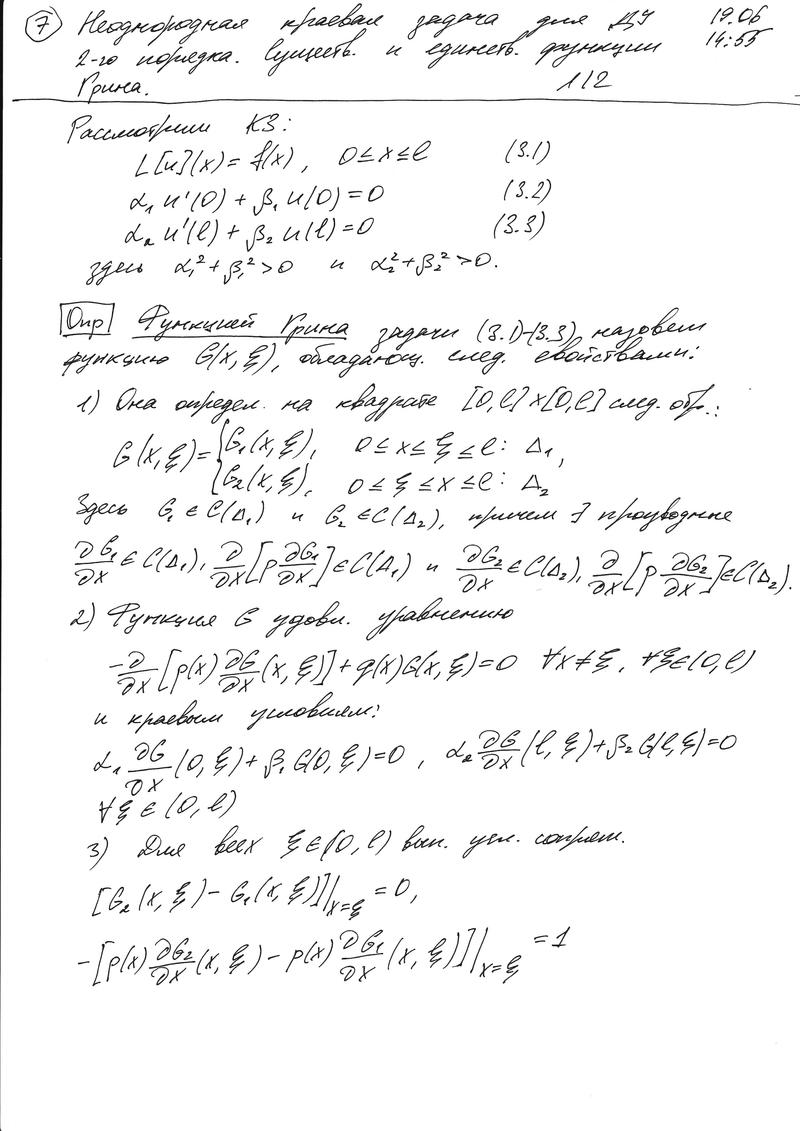 7 Неоднородная краевая задача для ДУ 19.06
2-го порядка. Существ. и единств. функции 14:55
Грина. 1/2
Рассмотрим КЗ:
L[u](x) = f(x), 0 ≤ x ≤ l (3.1)
α₁ u'(0) + β₁ u(0) = 0 (3.2)
α₂ u'(l) + β₂ u(l) = 0 (3.3)
здесь α₁² + β₁² > 0 и α₂² + β₂² > 0.
Опр Функцией Грина задачи (3.1)-(3.3) назовем
функцию G(x, ξ), обладающ. след. свойствами:
1) Она определ. на квадрате [0, l] × [0, l] след. обр.:
G(x, ξ) = { G₁(x, ξ), 0 ≤ x ≤ ξ ≤ l: Δ₁,
G₂(x, ξ), 0 ≤ ξ ≤ x ≤ l: Δ₂
Здесь G₁ ∈ C(Δ₁) и G₂ ∈ C(Δ₂), причем ∃ производные
∂G₁/∂x ∈ C(Δ₁), ∂/∂x [p ∂G₁/∂x] ∈ C(Δ₁) и ∂G₂/∂x ∈ C(Δ₂), ∂/∂x [p ∂G₂/∂x] ∈ C(Δ₂).
2) Функция G удовл. уравнению
-∂/∂x [p(x) ∂G/∂x (x, ξ)] + q(x) G(x, ξ) = 0 ∀x ≠ ξ, ∀ξ ∈ (0, l)
и краевым условиям:
α₁ ∂G/∂x (0, ξ) + β₁ G(0, ξ) = 0, α₂ ∂G/∂x (l, ξ) + β₂ G(l, ξ) = 0
∀ξ ∈ (0, l)
3) Для всех ξ ∈ (0, l) вып. усл. сопряж.
[G₂(x, ξ) - G₁(x, ξ)]|x=ξ = 0,
-[p(x) ∂G₂/∂x (x, ξ) - p(x) ∂G₁/∂x (x, ξ)]|x=ξ = 1